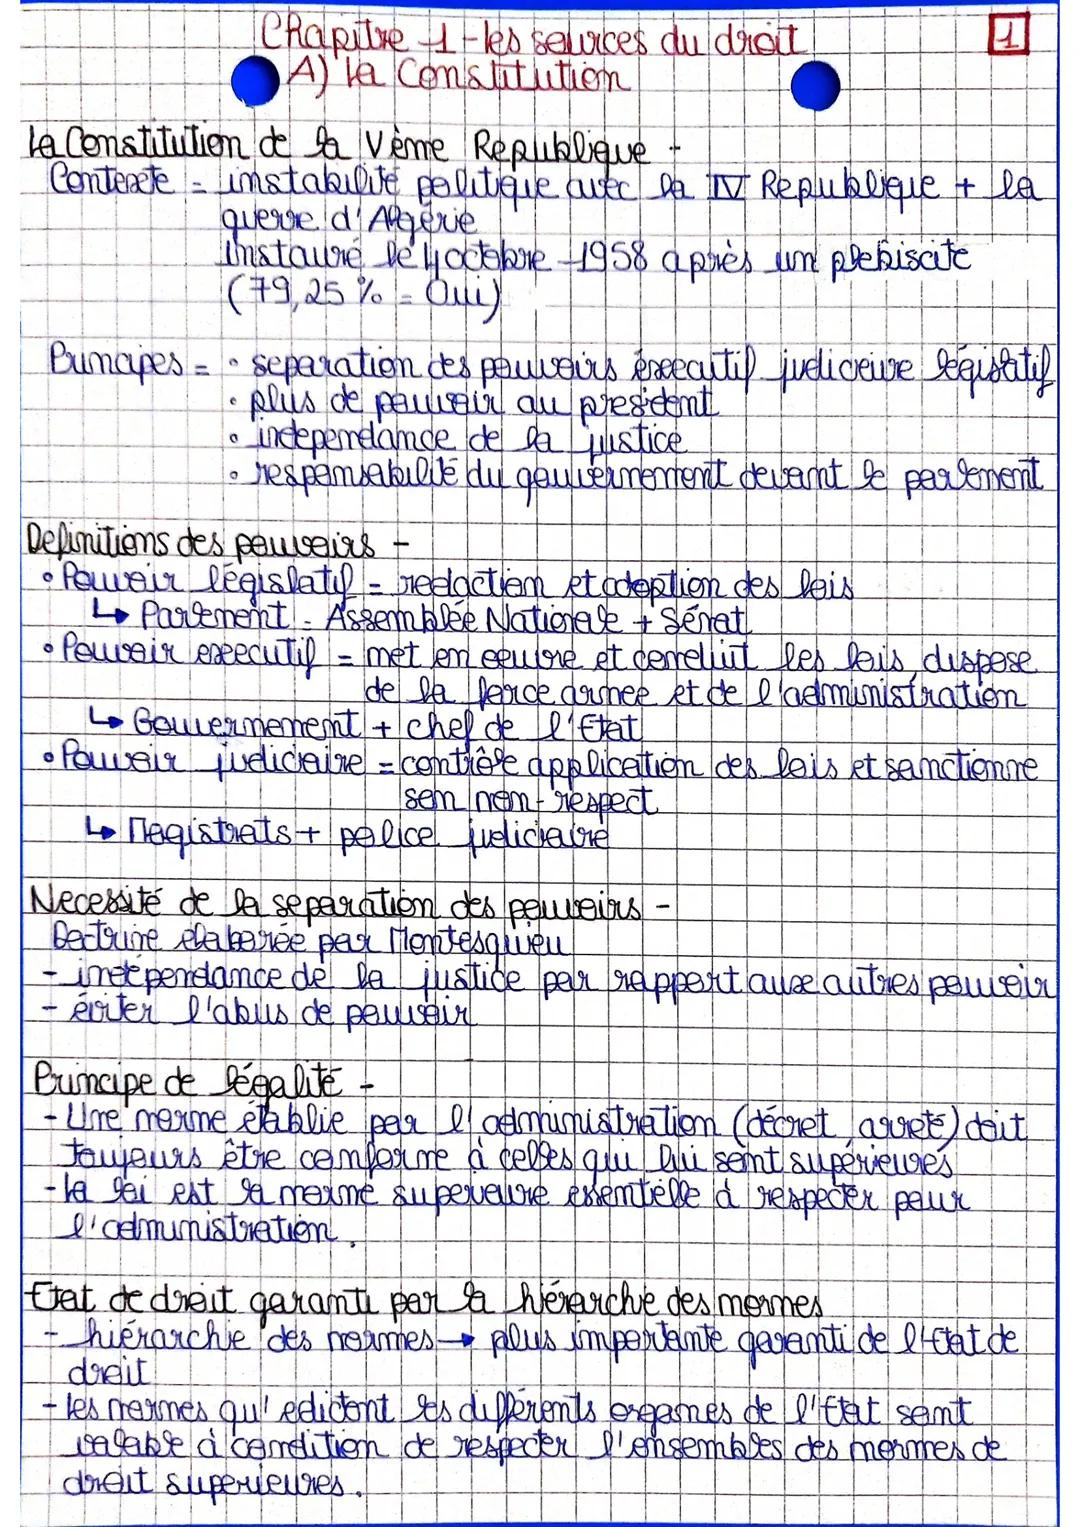 Chapitre 1 - les sources du droit
1
A) la Constitution
La Constitution de la Vème Republique -
Contexte = instabilité politique avec la IV Republique + la
guerre d'Algérie
instauré le 4 octobre 1958 après un plebiscite
(79,25 % = Oui)
Principes = • separation des pouvoirs éxecutif judiciaire législatif
• plus de pouvoir au president
• independance de la justice
• responsabilité du gouvernement devant le parlement
Definitions des pouvoirs -
• Pouvoir législatif = redaction et adoption des lois
↳ Parlement = Assemblée Nationale + Sénat
• Pouvoir executif = met en oeuvre et conduit les lois, dispose
de la force armee et de l'administration
↳ Gouvernement + chef de l'Etat
• Pouvoir judiciaire = contrôle application des lois et sanctionne
son non-respect
↳ Magistrats + police judiciaire
Necessité de la separation des pouvoirs -
Doctrine élaborée par Montesquieu
- independance de la justice par rapport aux autres pouvoir
- éviter l'abus de pouvoir
Principe de légalité -
- Une norme établie par l'administration (décret, arreté) doit
toujours être conforme à celles qui lui sont supérieures
- la loi est la norme superieure essentielle à respecter pour
l'administration.
Etat de droit garanti par la hiérarchie des normes
- hiérarchie des normes → plus importante garanti de l'Etat de
droit
- les normes qu'edictent les différents organes de l'Etat sont
valable à condition de respecter l'ensembles des normes de
droit superieures.